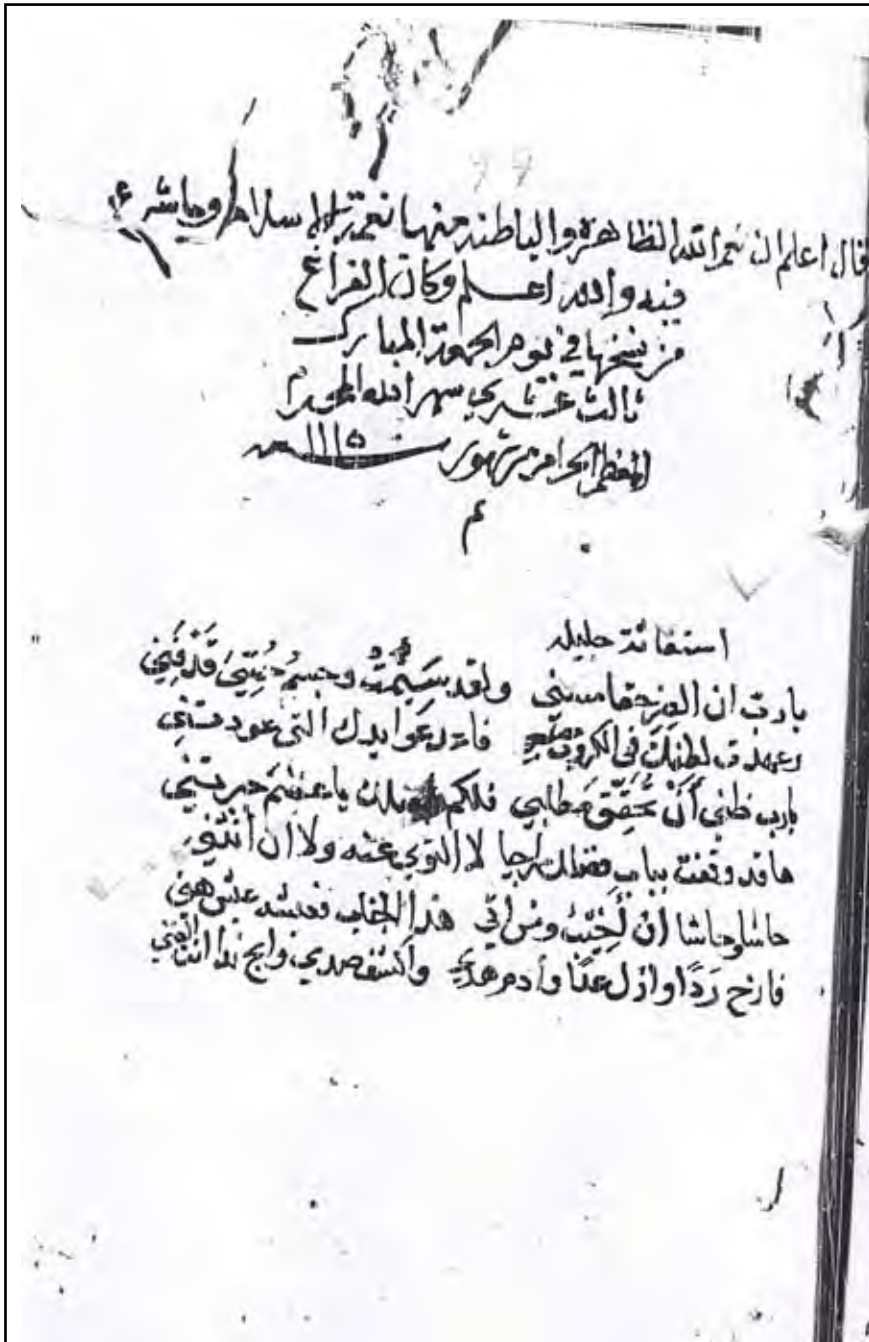 قال اعلم ان نعم الله الظاهرة والباطنه منها نعمة الاسلام
فيه والله اعلم وكان الفراغ
من نسخها في يوم الجمعة المبارك
ثالث عشري شهر الله المحرم
المعظم الحرام من شهور سنة ١١١٥
م
استغاثة جليله
يارب ان الضر حقا مسني ولقد سئمت وجسم قد فني
وعهدت لطفك في الكروب فاردد عوايدك التي عودتني
يارب ظني أن تحقق مطلبي فلكم يا عظيم جبرتني
ها قد وقفت بباب فضلك راجيا لا التوي عنه ولا ان أنثني
حاشا وحاشا أن أخيب وفي هذا الجناب عيش هني
فارح وازل عنا وأدم واكشف وابح أنت الغني